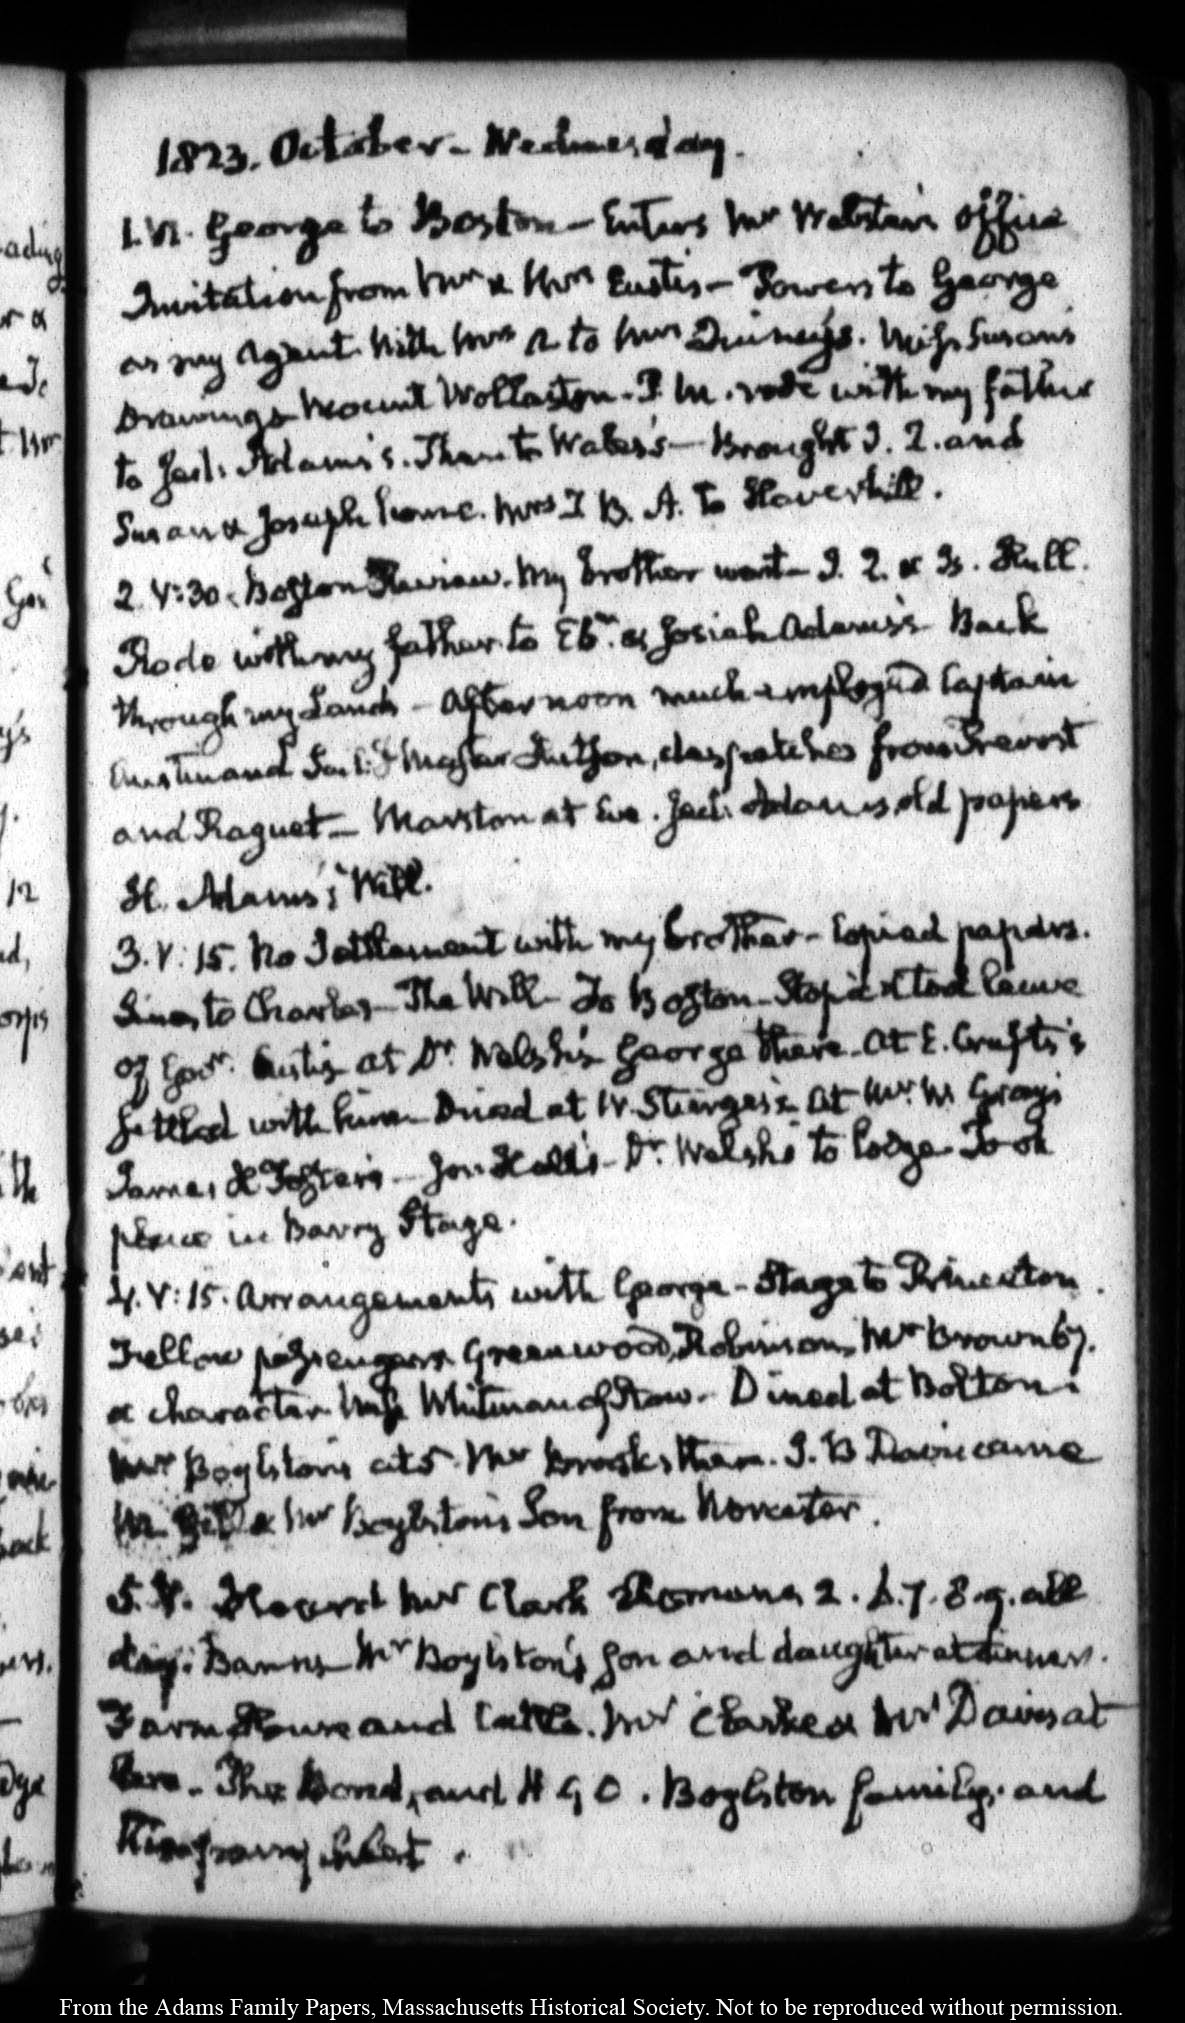 1823. October - Wednesday.
1. VI. George to Boston - Enters Mr Webster's office
Invitation from Mr & Mrs Eustis - Powers to George
as my Agent. With Mrs A to Mrs Quincy's. Miss Susan's
Drawings Mount Wollaston - P. M. rode with my father
to Jed: Adams's. Thence to Wales's - Brought T. B. and
Susan & Joseph home. Mrs T B. A. to Haverhill.
2. V:30. Boston Review. My brother went - J. Q. & Is. Hull.
Rode with my father to Ebr. & Josiah Adams's Back
through my Lands - Afternoon much employed Captain
and Master , despatches from Prevost
and Raguet - Marston at Eve. Jed: Adams, old papers
H. Adams's Will.
3. V:15. No Settlement with my brother - Copied papers.
Lines to Charles - The Will - To Boston - Stop'd & took leave
of Govr. Eustis at Dr. Welsh's George there - At E. Crufts's
Settled with him - Dined at W. Sturgis's At Mr. W. Gray's
James H Foster's - Jos: Hall's - Dr. Welsh's to lodge - Took
place in Barry Stage.
4. V:15. Arrangements with George - Stage to Princeton.
Fellow passengers Greenwood, Robinson, Mr Brown 67.
a character Miss Whitman of Stow - Dined at Bolton:
Mr Boylston's at 5. Mr Brooks there. J. B Davis came
Mr Gill & Mr Boylston's Son from Worcester.
5. V. Heard Mr Clark Romans 2. 6. 7. 8. 9. all
day: Barns Mr Boylston's Son and daughter at dinner.
Farm House and Cattle. Mr Clarke & Mr Davis at
Eve - The Bond, and H G O. Boylston family. and